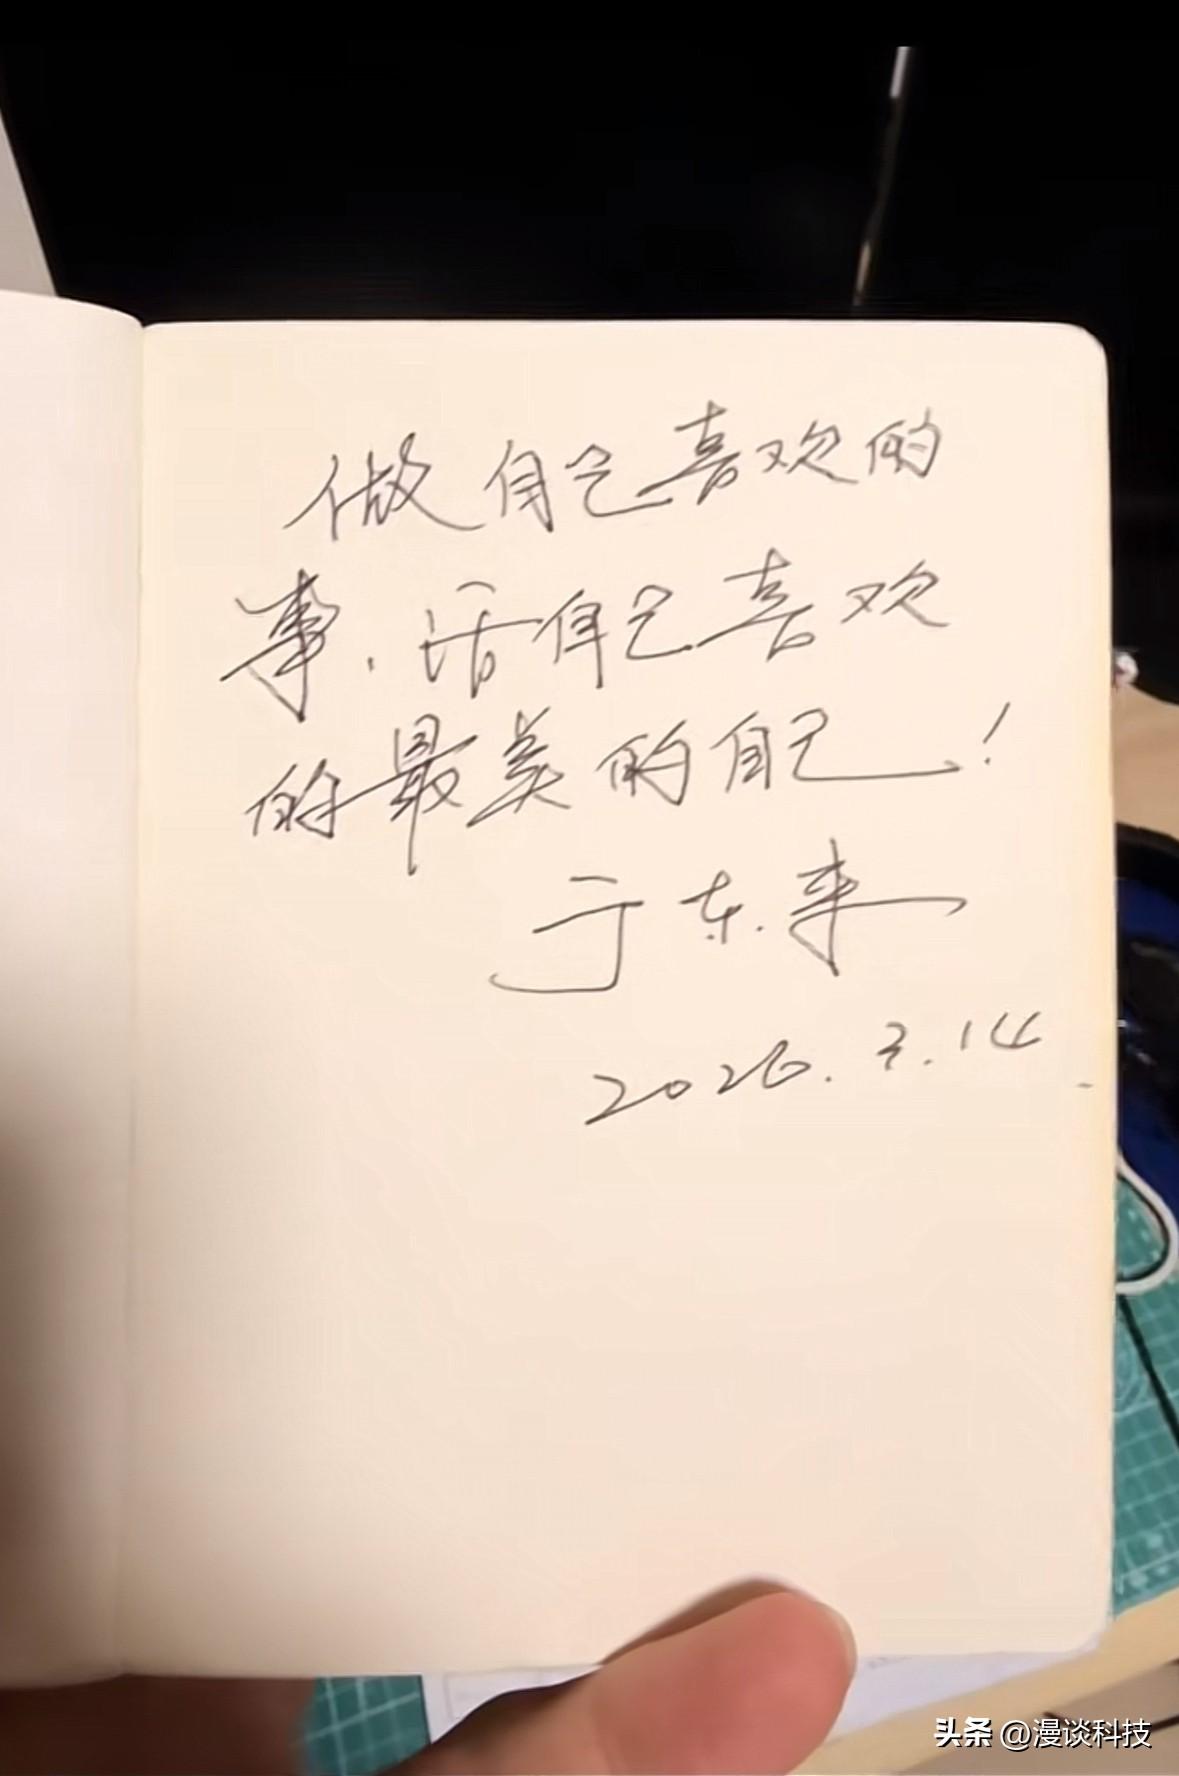 做自己喜欢的
事.活自己喜欢
的最美的自己!
于东来
2026.3.14
头条 @漫谈科技